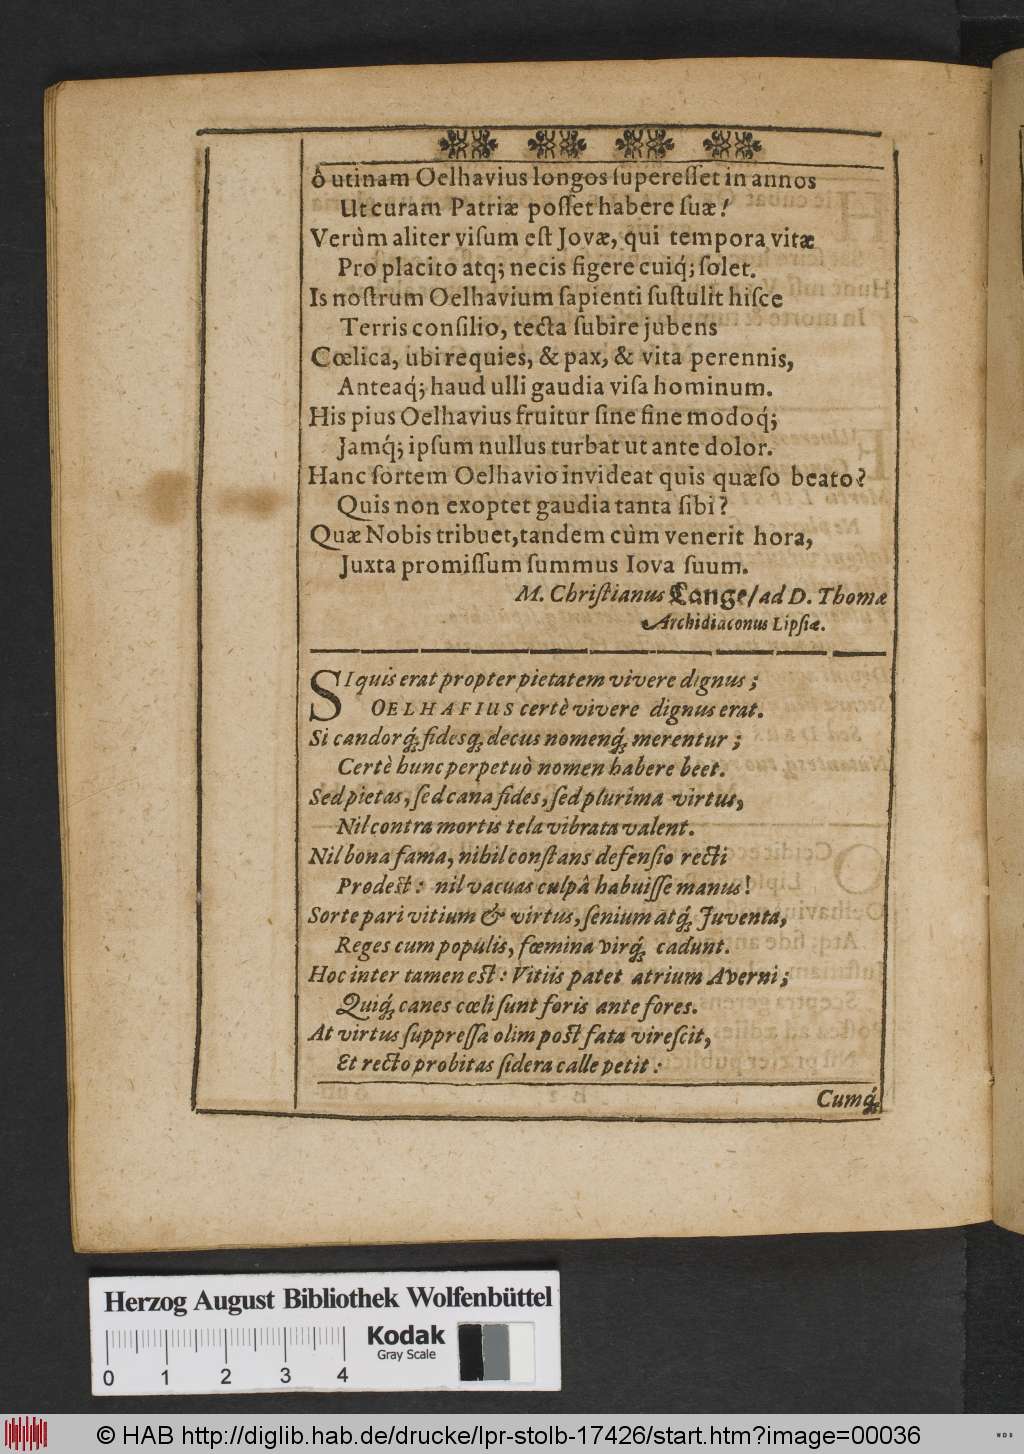 ô utinam Oelhavius longos ſupereſſet in annos
Ut curam Patriæ poſſet habere ſuæ!
Verùm aliter viſum eſt Jovæ, qui tempora vitæ
Pro placito atq; necis figere cuiq́; ſolet.
Is noſtrum Oelhavium ſapienti ſuſtulit hiſce
Terris conſilio, tecta ſubire jubens
Cœlica, ubi requies, & pax, & vita perennis,
Anteaq́; haud ulli gaudia viſa hominum.
His pius Oelhavius fruitur ſine fine modoq́;
Jamq́; ipſum nullus turbat ut ante dolor.
Hanc ſortem Oelhavio invideat quis quæſo beato?
Quis non exoptet gaudia tanta ſibi?
Quæ Nobis tribuet, tandem cùm venerit hora,
Juxta promiſſum ſummus Iova ſuum.
M. Chriſtianus Lange/ ad D. Thomæ
Archidiaconus Lipſiæ.
SI quis erat propter pietatem vivere dignus;
OELHAFIUS certè vivere dignus erat.
Si candorq́; fidesq; decus nomenq́; merentur;
Certè hunc perpetuò nomen habere beet.
Sed pietas, ſed cana fides, ſed plurima virtus,
Nil contra mortis tela vibrata valent.
Nil bona fama, nihil conſtans defenſio recti
Prodeſt: nil vacuas culpâ habuiſſe manus!
Sorte pari vitium & virtus, ſenium atq́; Juventa,
Reges cum populis, fœmina virq́; cadunt.
Hoc inter tamen eſt: Vitiis patet atrium Averni;
Quiq́; canes cœli ſunt foris ante fores.
At virtus ſuppreſſa olim poſt fata vireſcit,
Et recto probitas ſidera calle petit:
Cumq́;
Herzog August Bibliothek Wolfenbüttel
Kodak
Gray Scale
0 1 2 3 4
© HAB http://diglib.hab.de/drucke/lpr-stolb-17426/start.htm?image=00036
WDB